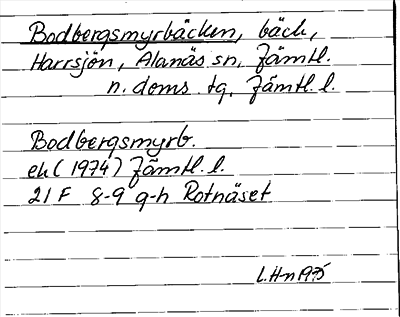 Bodbergsmyrbäcken, bäck,
Harrsjön, Alanäs sn, Jämtl.
n. doms. tg, Jämtl. l.
Bodbergsmyrb.
ek (1974) Jämtl. l.
21 F 8-9 g-h Rotnäset
L.H-n 1975